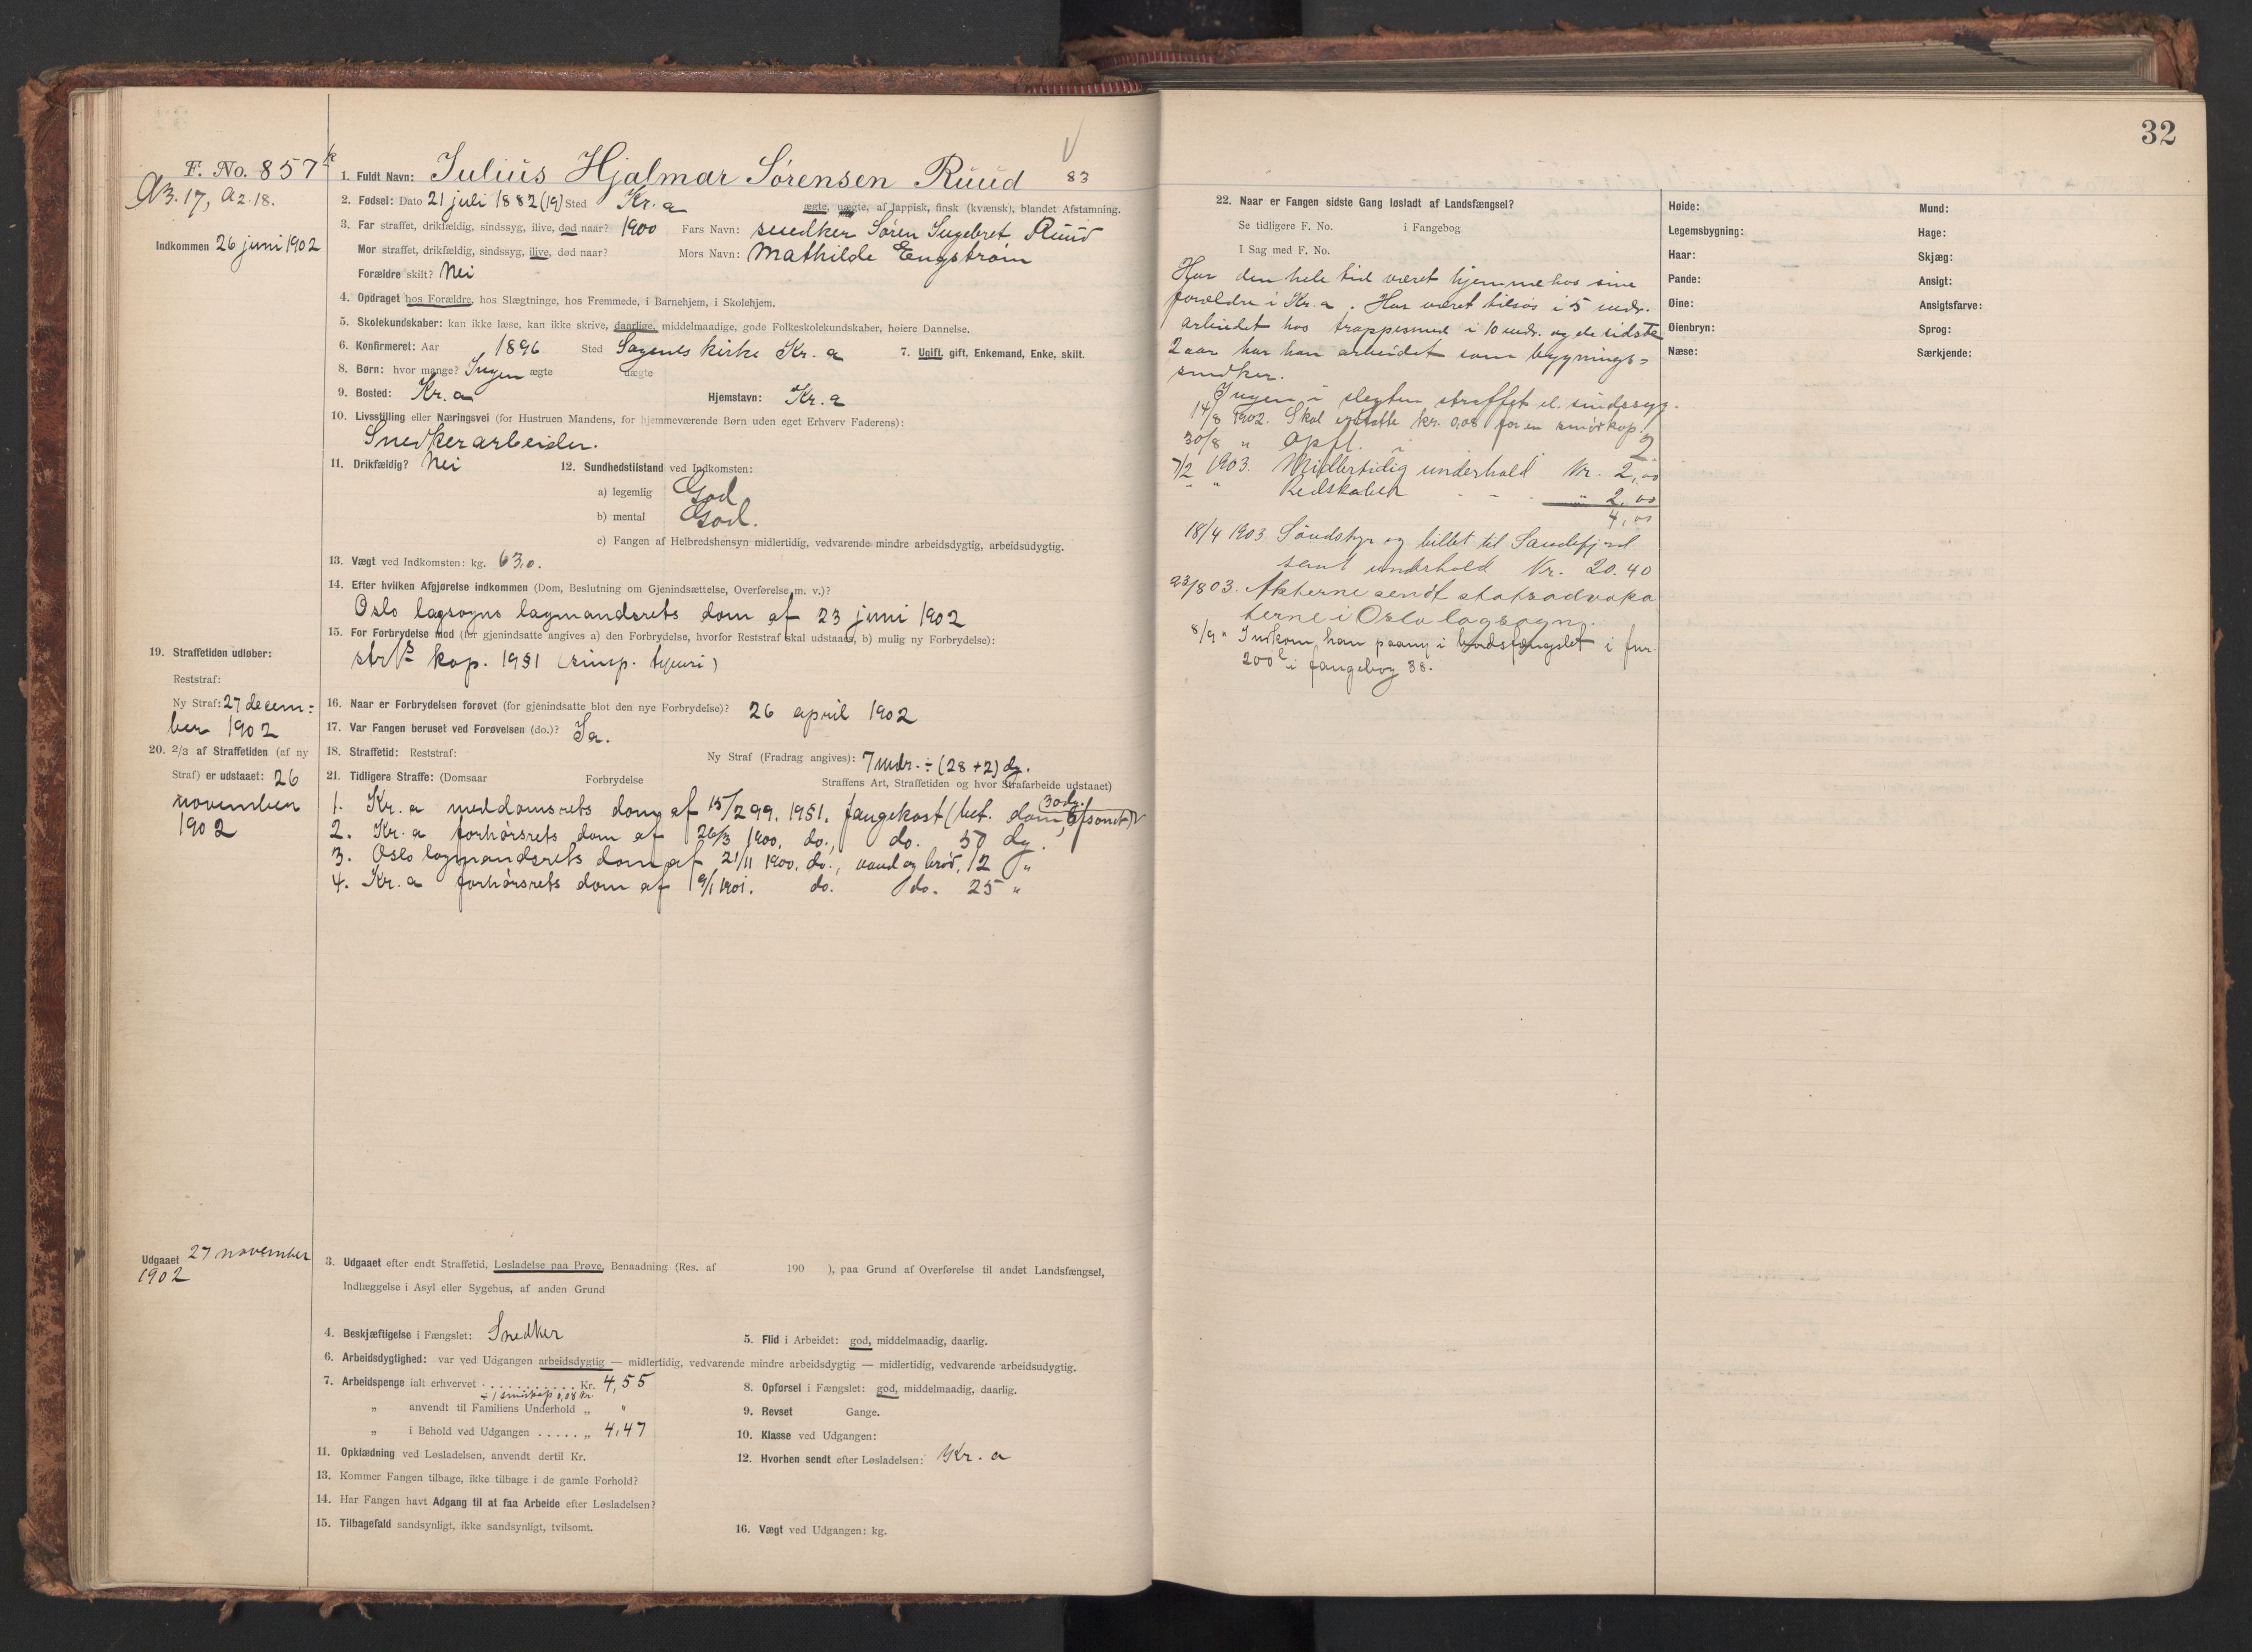 32
F. No. 857
A3. 17, A2. 18.
Indkommen 26 juni 1902
1. Fuldt Navn: Julius Hjalmar Sørensen Ruud 83
2. Fødsel: Dato 21 juli 1882 (19) Sted Kr.a ægte, uægte, af lappisk, finsk (kvænsk), blandet Afstamning.
3. Far straffet, drikfældig, sindssyg, ilive, død naar? 1900 Fars Navn: snedker Søren Ingebret. Ruud
Mor straffet, drikfældig, sindssyg, ilive, død naar? Mors Navn: Mathilde Engstrøm
Forældre skilt? Nei
4. Opdraget hos Forældre, hos Slægtninge, hos Fremmede, i Barnehjem, i Skolehjem.
5. Skolekundskaber: kan ikke læse, kan ikke skrive, daarlige, middelmaadige, gode Folkeskolekundskaber, høiere Dannelse.
6. Konfirmeret: Aar 1896 Sted Sagenes kirke Kr. a 7. Ugift, gift, Enkemand, Enke, skilt.
8. Børn: hvor mange? Ingen ægte uægte
9. Bosted: Kr. a Hjemstavn: Kr. a
10. Livsstilling eller Næringsvei (for Hustruen Mandens, for hjemmeværende Børn uden eget Erhverv Faderens):
Snedkerarbeider.
11. Drikfældig? Nei 12. Sundhedstilstand ved Indkomsten:
a) legemlig God
b) mental God.
c) Fangen af Helbredshensyn midlertidig, vedvarende mindre arbeidsdygtig, arbeidsudygtig.
13. Vægt ved Indkomsten: kg. 63,0.
14. Efter hvilken Afgjørelse indkommen (Dom, Beslutning om Gjenindsættelse, Overførelse m. v.)?
Oslo lagsogns lagmandsrets dom af 23 juni 1902
15. For Forbrydelse mod (for gjenindsatte angives a) den Forbrydelse, hvorfor Reststraf skal udstaaes, b) mulig ny Forbrydelse):
kap. 19§1 (simp. tyveri)
19. Straffetiden udløber:
Reststraf:
Ny Straf: 27 decem=
ber 1902
16. Naar er Forbrydelsen forøvet (for gjenindsatte blot den nye Forbrydelse)? 26 april 1902
17. Var Fangen beruset ved Forøvelsen (do.)? Ja.
20. 2/3 af Straffetiden (af ny
Straf) er udstaaet: 26
november
1902
18. Straffetid: Reststraf: Ny Straf (Fradrag angives): 7 mdr. ÷ (28 + 2) dg.
21. Tidligere Straffe: (Domsaar Forbrydelse Straffens Art, Straffetiden og hvor Strafarbeide udstaaet)
1. Kr. a meddomsrets dom af 15/2 99. 19§1. fangekost (bet. dom, afsonet) 30 dg.
2. Kr. a forhørsrets dom af 26/3 1900. do., do. 50 dg.
3. Oslo lagmandsrets dom af 21/11 1900. do., vand og brød, 12 "
4. Kr. a forhørsrets dom af 9/1 1901. do. do. 25 "
Udgaaet 27 november
1902
3. Udgaaet efter endt Straffetid, Løsladelse paa Prøve, Benaadning (Res. af 190 ), paa Grund af Overførelse til andet Landsfængsel,
Indlæggelse i Asyl eller Sygehus, af anden Grund
4. Beskjæftigelse i Fængslet: Snedker 5. Flid i Arbeidet: god, middelmaadig, daarlig.
6. Arbeidsdygtighed: var ved Udgangen arbeidsdygtig — midlertidig, vedvarende mindre arbeidsdygtig — midlertidig, vedvarende arbeidsudygtig.
7. Arbeidspenge ialt erhvervet . . . . . . . . . . . Kr. 4,55 8. Opførsel i Fængslet: god, middelmaadig, daarlig.
÷ 1 smørkop 0,08 kr.
" anvendt til Familiens Underhold " " 9. Revset Gange.
" i Behold ved Udgangen . . . . . " 4,47 10. Klasse ved Udgangen:
11. Opklædning ved Løsladelsen, anvendt dertil Kr. 12. Hvorhen sendt efter Løsladelsen: Kr. a
13. Kommer Fangen tilbage, ikke tilbage i de gamle Forhold?
14. Har Fangen havt Adgang til at faa Arbeide efter Løsladelsen?
15. Tilbagefald sandsynligt, ikke sandsynligt, tvilsomt. 16. Vægt ved Udgangen: kg.
22. Naar er Fangen sidste Gang løsladt af Landsfængsel?
Se tidligere F. No. i Fangebog
I Sag med F. No.
Har den hele tid været hjemme hos sine
forældre i Kr. a. Har været tilsøs i 5 mdr.
arbeidet hos trappesmed i 10 mdr. og de sidste
2 aar har han arbeidet som bygnings=
snedker.
Ingen i slegten straffet el. sindssyg.
14/8 1902. Skal erstatte kr. 0,08 for en smørkop.
30/8 " Opfl. i 2
7/2 1903. Midlertidig underhold Kr. 2,00
" " Redskaber - - - " 2,00
4,00
18/4 1903 Søudstyr og billet til Sandefjord
samt underhold Kr. 20.40
23/8 03. Akterne sendt statsadvoka
terne i Oslo lagsogn.
8/9 " Indkom han paany i landsfængslet i fnr.
200 i fangebog 38.
Høide:
Legemsbygning:
Haar:
Pande:
Øine:
Øienbryn:
Næse:
Mund:
Hage:
Skjæg:
Ansigt:
Ansigtsfarve:
Sprog:
Særkjende: